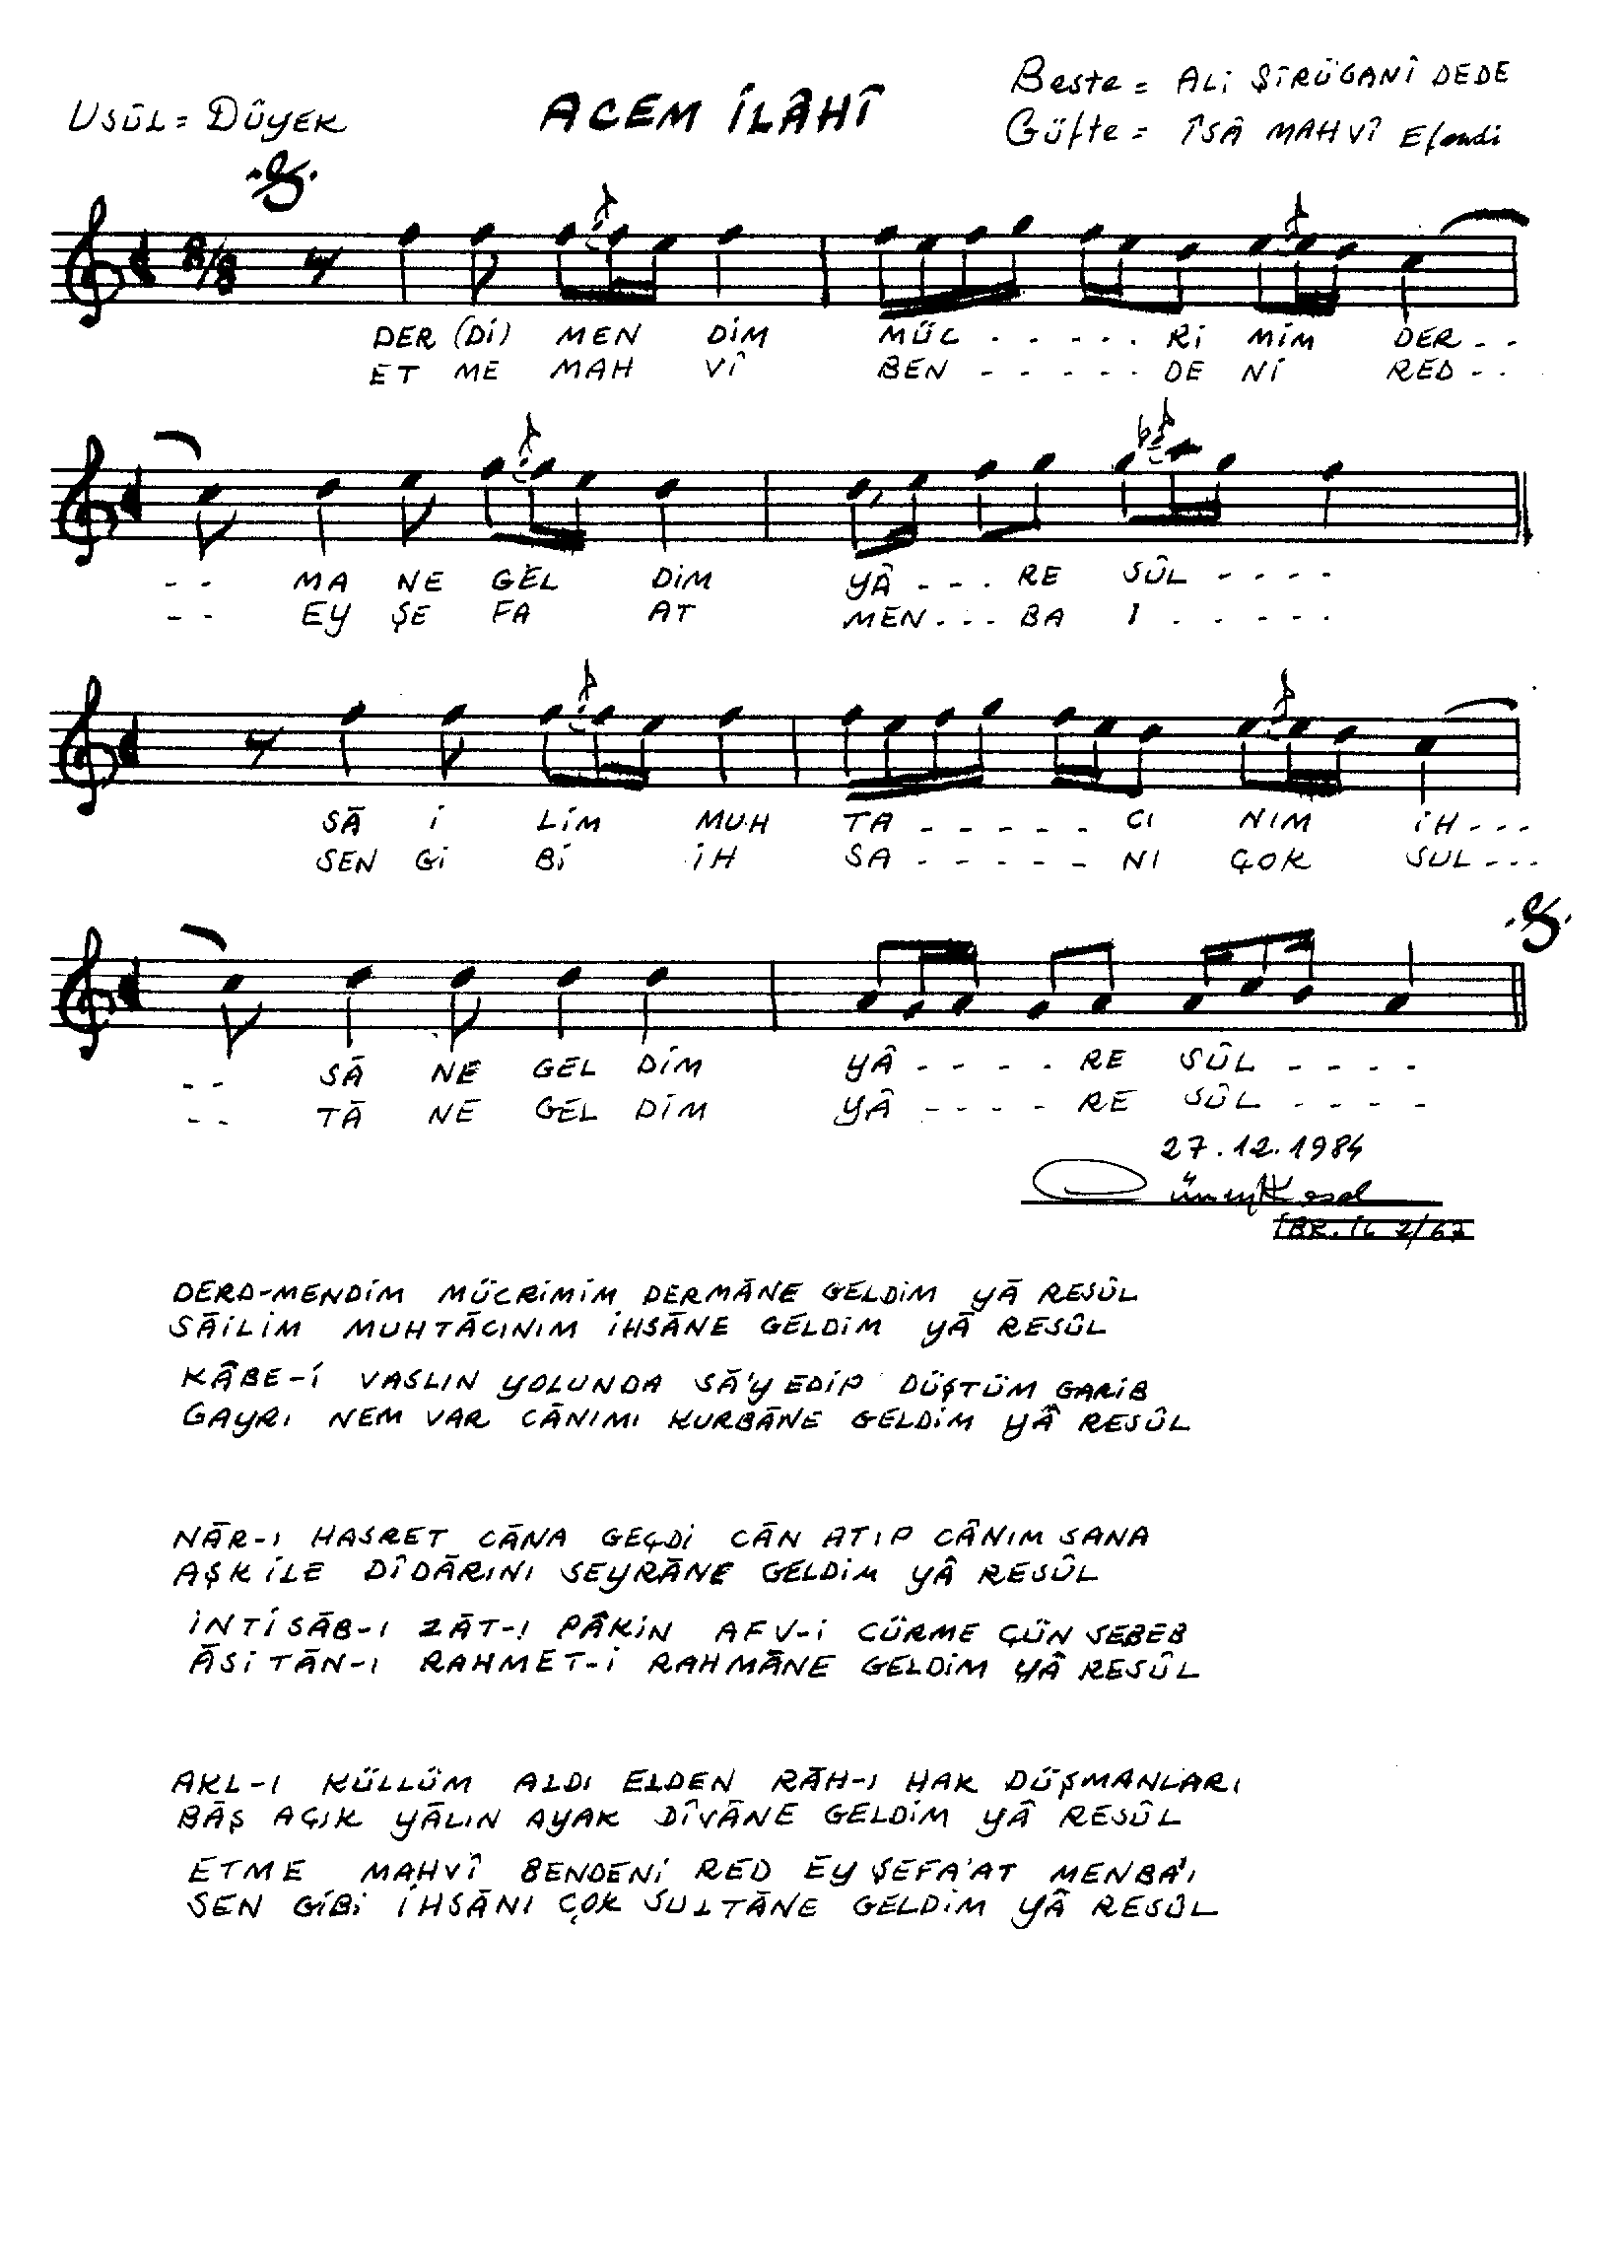 Usûl = Dûyek
ACEM İLÂHÎ
Beste = ALİ ŞİRÜGANÎ DEDE
Güfte = ÎSÂ MAHVÎ Efendi
8/8
DER (Dİ) MEN DİM MÜC - - - - - Rİ MİM DER - -
ET ME MAH VÎ BEN - - - - - DE Nİ RED - -
- - MA NE GEL DİM YÂ - - - RE SÛL - - - -
- - EY ŞE FA AT MEN - - - BA I - - - - -
SĀ İ LİM MUH TA - - - - - CI NIM İH - - -
SEN Gİ Bİ İH SA - - - - - NI ÇOK SUL - - -
- - SĀ NE GEL DİM YÂ - - - - RE SÛL - - - -
- - TĀ NE GEL DİM YÂ - - - - RE SÛL - - - -
27.12.1984
DERD-MENDİM MÜCRİMİM DERMĀNE GELDİM YĀ RESÛL
SĀİLİM MUHTĀCINIM İHSĀNE GELDİM YĀ RESÛL
KÂBE-İ VASLIN YOLUNDA SĀ'Y EDİP DÜŞTÜM GARİB
GAYRI NEM VAR CĀNIMI KURBĀNE GELDİM YÂ RESÛL
NĀR-I HASRET CĀNA GEÇDİ CĀN ATIP CÂNIM SANA
AŞK İLE DÎDĀRINI SEYRĀNE GELDİM YÂ RESÛL
İNTİSĀB-I ZĀT-I PÂKİN AFV-İ CÜRME ÇÜN SEBEB
ĀSİTĀN-I RAHMET-İ RAHMĀNE GELDİM YÂ RESÛL
AKL-I KÜLLÜM ALDI ELDEN RĀH-I HAK DÜŞMANLARI
BĀŞ AÇIK YĀLIN AYAK DÎVĀNE GELDİM YÂ RESÛL
ETME MAHVÎ BENDENİ RED EY ŞEFA'AT MENBA'I
SEN GİBİ İHSĀNI ÇOK SULTĀNE GELDİM YÂ RESÛL